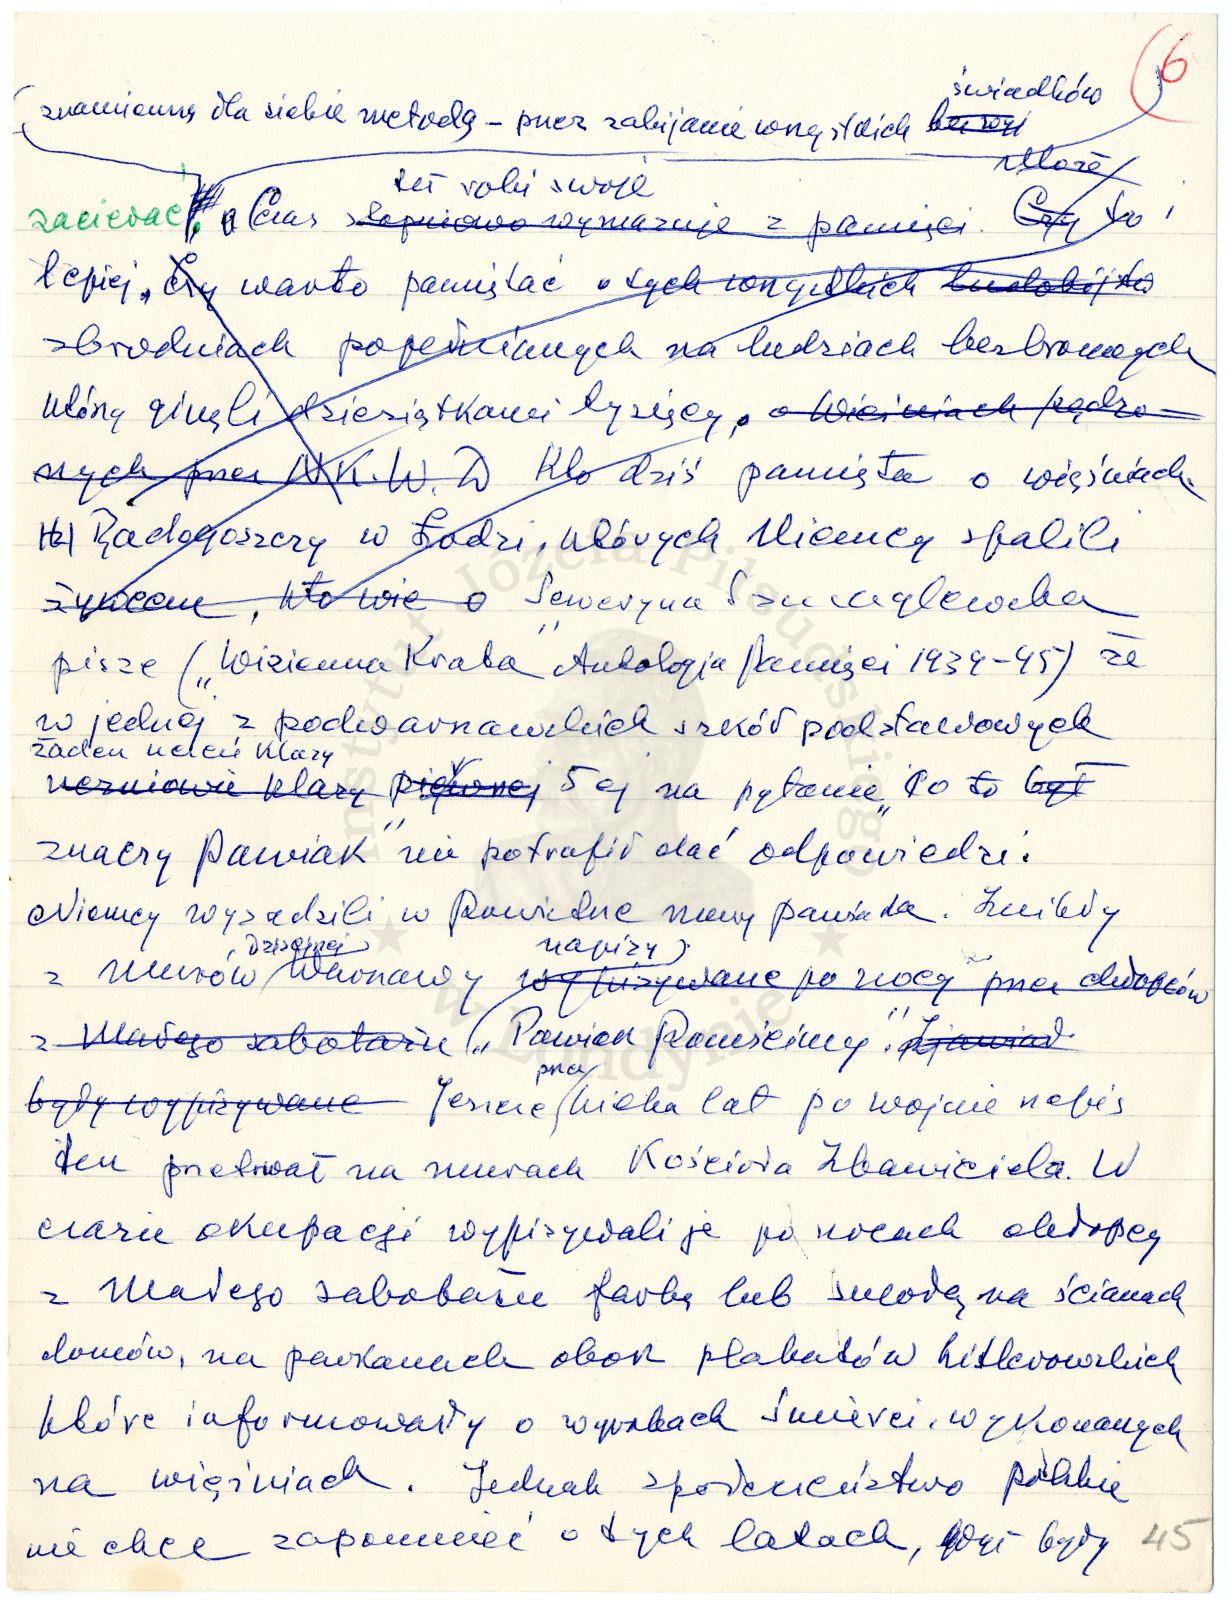 6
świadków
znamienną dla siebie metodą – przez zabijanie wszystkich
Może
też robi swoje
zacierać. Czas stopniowo wymazuje z pamięci. Czy to i
lepiej, Czy warto pamiętać o tych wszystkich ludobójstw
zbrodniach popełnianych na ludziach bezbronnych
którzy ginęli dziesiątkami tysięcy, o więźniach pędzo-
nych przez N.K.W.D Kto dziś pamięta o więźniach
Radogoszczy w Łodzi, których Niemcy spalili
żywcem, kto wie o Seweryna Szmaglewska
pisze („Wizienna Krata" Antologia Pamięci 1939-45) że
w jednej z podwarszawskich szkół podstawowych
żaden uczeń klasy
uczniowie klasy piątej 5 ej na pytanie „Co to był
znaczy Pawiak" nie potrafił dać odpowiedzi.
Niemcy wysadzili w Powietrze mury Pawiaka. Znikły
dzisiejszej napisy
z murów Warszawy wypisywane po nocy przez chłopców
z Małego sabotażu („Pawiak Pomścimy".
przez
były wypisywane Jeszcze kilka lat po wojnie napis
ten przetrwał na murach Kościoła Zbawiciela. W
czasie okupacji wypisywali je po nocach chłopcy
z Małego sabotażu farbą lub smołą na ścianach
domów, na parkanach obok plakatów hitlerowskich
które informowały o wyrokach śmierci wykonanych
na więźniach. Jednak społeczeństwo polskie
nie chce zapomnieć o tych latach, gdyż były 45
Instytut Józefa Piłsudskiego
w Londynie